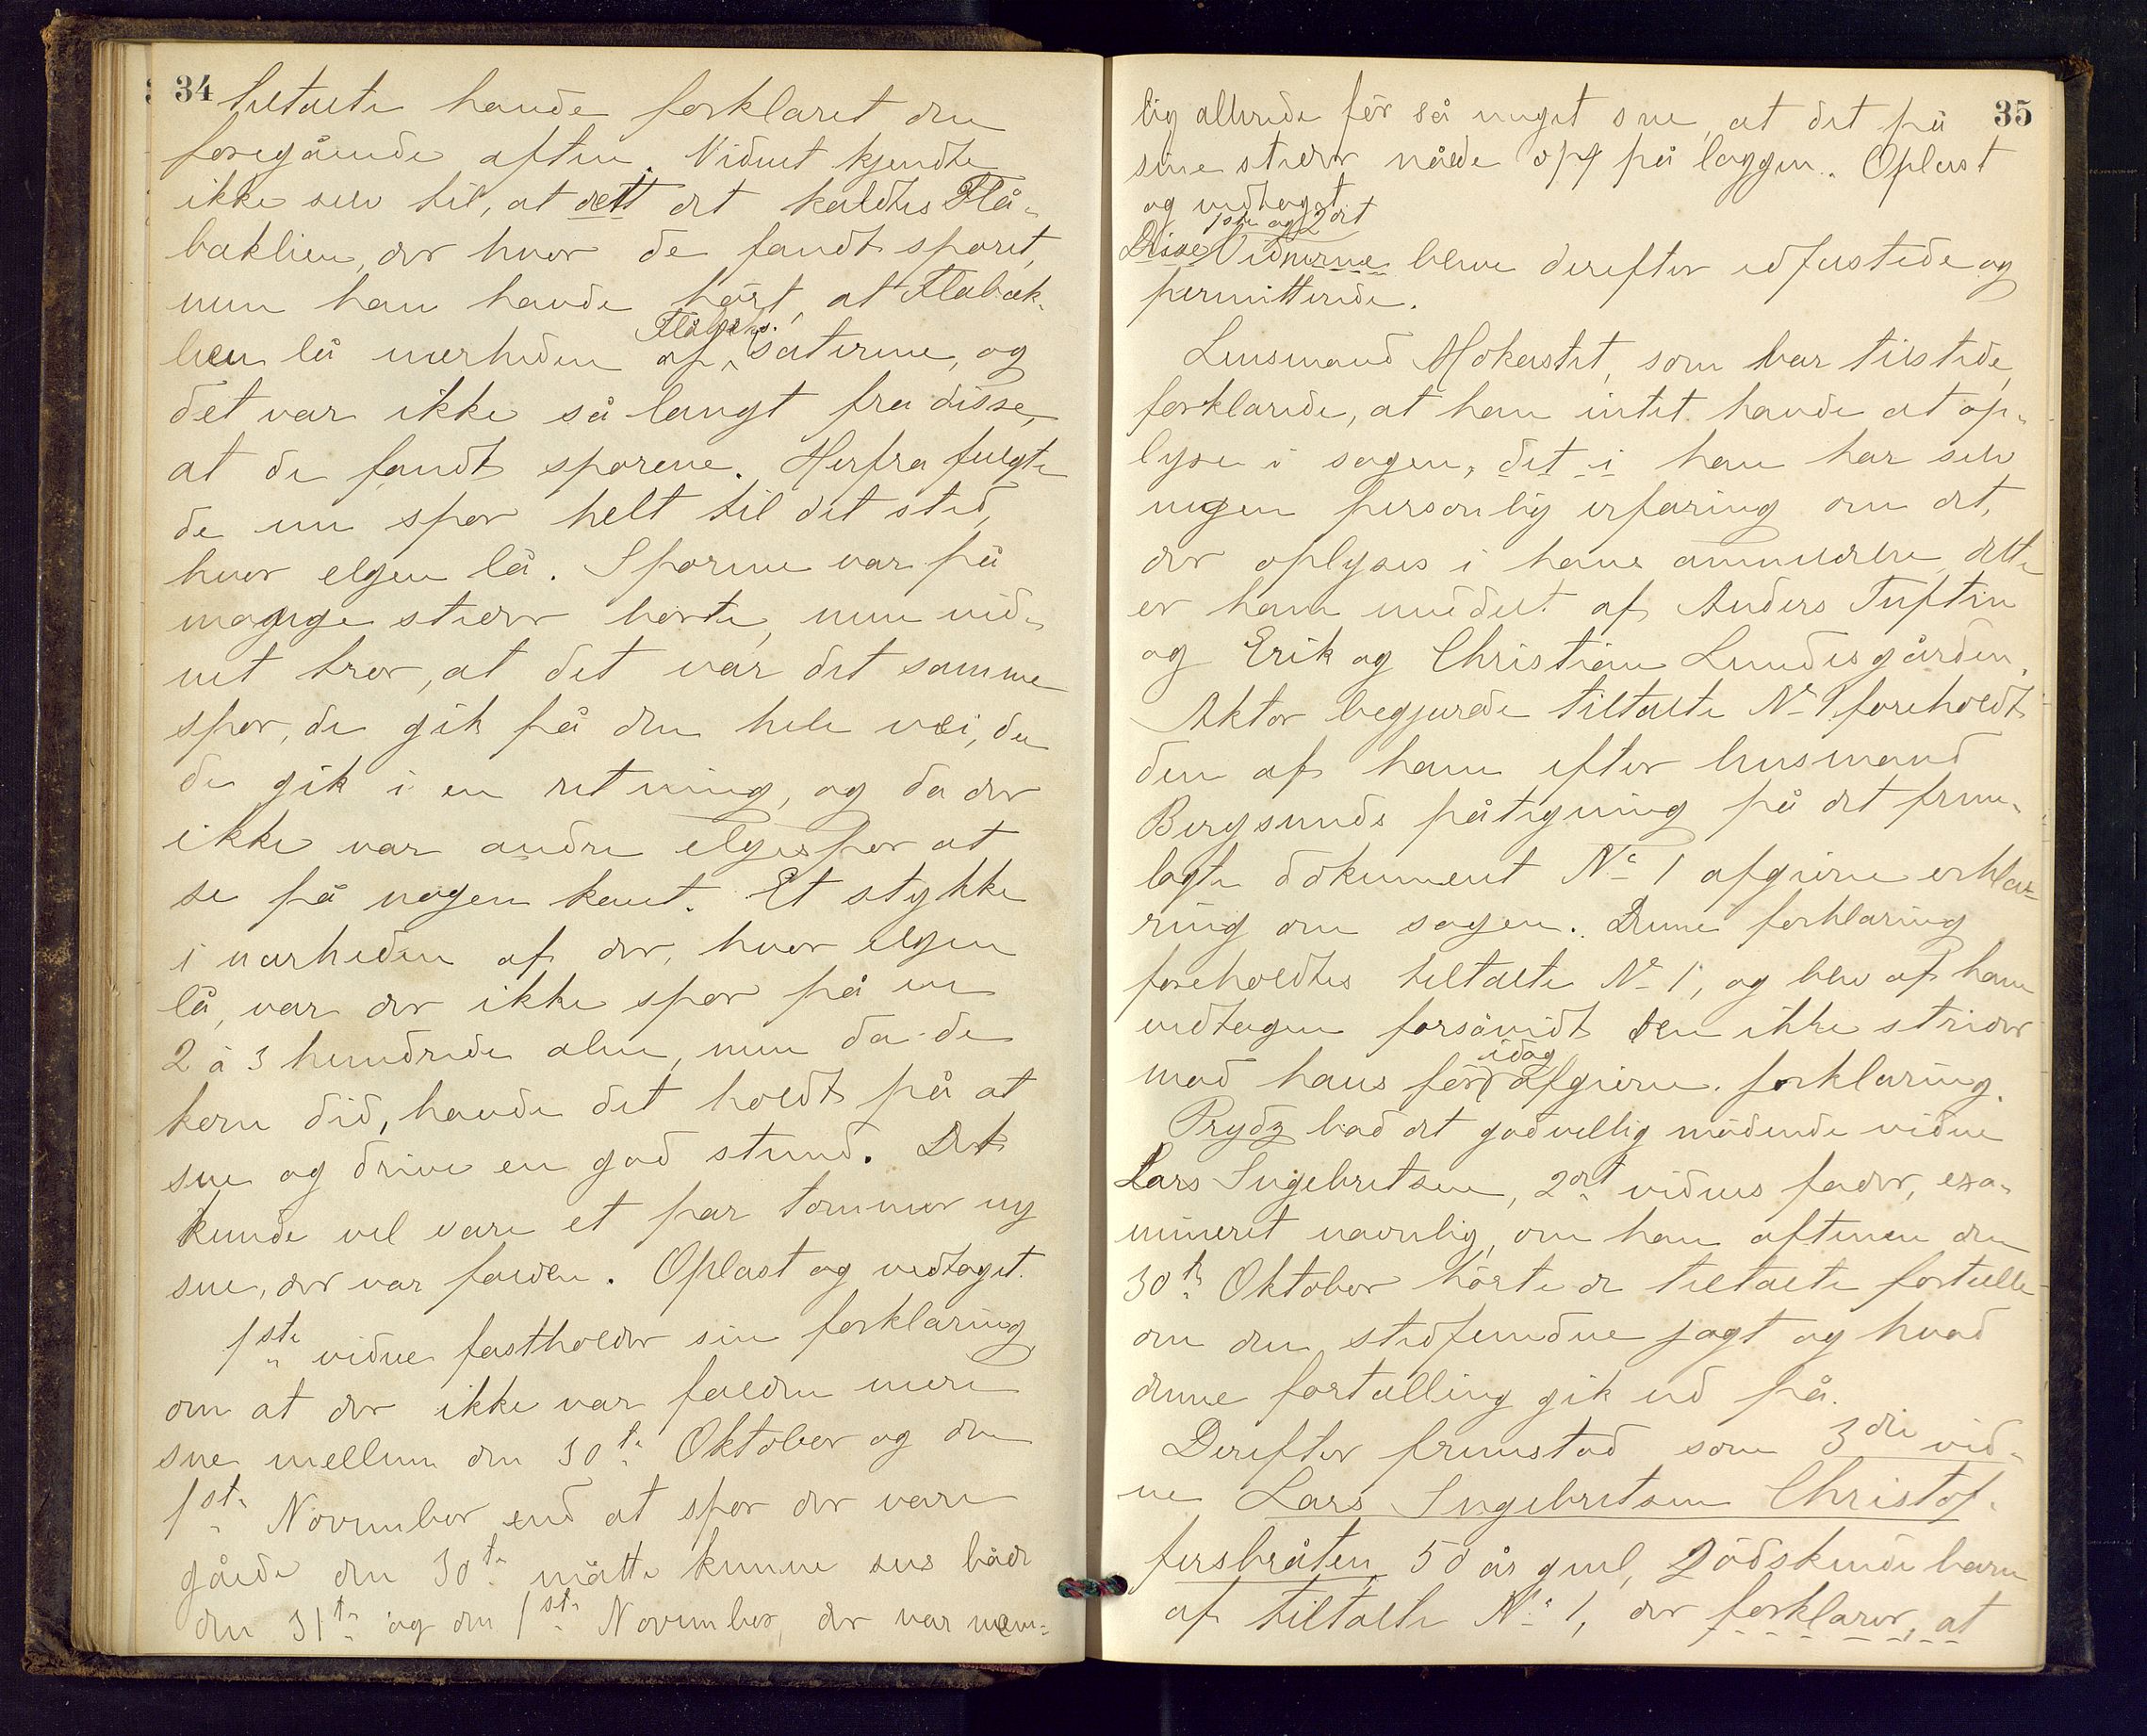 34
tiltalte havde forklaret den
foregående aften. Vidnet kjendte
ikke selv til, at dett det kaldtes Flå-
baklien, der hvor de fandt sporet,
men han havde hørt, at Flabak-
lien lå nærheden af Flågens. sæterne, og
det var ikke så langt fra disse,
at de fandt sporene. Herfra fulgte
de nu spor helt til det sted,
hvor elgen lå. Sporene var på
magnge steder borte, men vid-
net tror, at det var det samme
spor, de gik på den hele vei, da
de gik i en retning, og da der
ikke var andre elgespor at
se på nogen kant. Et stykke
i nærheden af der, hvor elgen
lå, var der ikke spor på en
2 à 3 hundrede alen, men da de
kom did, havde det holdt på at
sne og drive en god stund. Det
kunde vel være et par tommer ny
sne, der var falden. Oplæst og vedtaget.
1ste vidne fastholder sin forklaring
om at der ikke var falden mere
sne mellem den 30te Oktober og den
1ste November end at spor der vare
gåede den 30te måtte kunne sees både
den 31te og den 1ste November, der var nem-
35
lig allerede før så meget sne, at det på
sine steder nåede opp på læggen. Oplæst
og vedtaget.
1ste og 2det
Disse Vidnerne bleve derefter edfæstede og
permitterede.
Lensmand Mokastet, som var tilstede,
forklarede, at han intet havde at op-
lyse i sagen, det i han har selv
ingen personlig erfaring om det,
der oplyses i hans anmeldelse, dette
er ham meddelt af Anders Tuften
og Erik og Christian Lundesgården.
Aktor begjærede tiltalte No 1 foreholdt
den af ham efter lensmand
Bergsunds påtegning på det frem-
lagte dokument No 1 afgivne erklæ-
ring om sagen. Denne forklaring
foreholdtes tiltalte No 1, og blev af ham
vedtagen forsåvidt den ikke strider
mod hans før idag afgivne forklaring.
Prydz bad det godvillig mødende vidne
Lars Ingebretsen, 2det vidnes fader, exa-
mineret navnlig, om han aftenen den
30te Oktober hørte de tiltalte fortælle
om den stedfundne jagt og hvad
denne fortælling gik ud på.
Derefter fremstod som 3die vid-
ne Lars Ingebretsen Christof-
fersbråten 50 år gml, Sødskendebarn
af tiltalte No 1, der forklarer, at